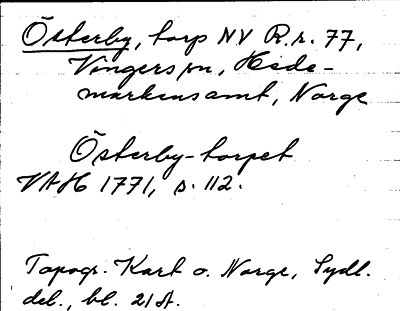 Österby, torp NV R.r. 77,
Vingers sn, Hede-
markens amt, Norge
Österby-torpet
VAH 1771, s. 112.
Topogr. Kart o. Norge, Sydl.
del., bl. 21A.